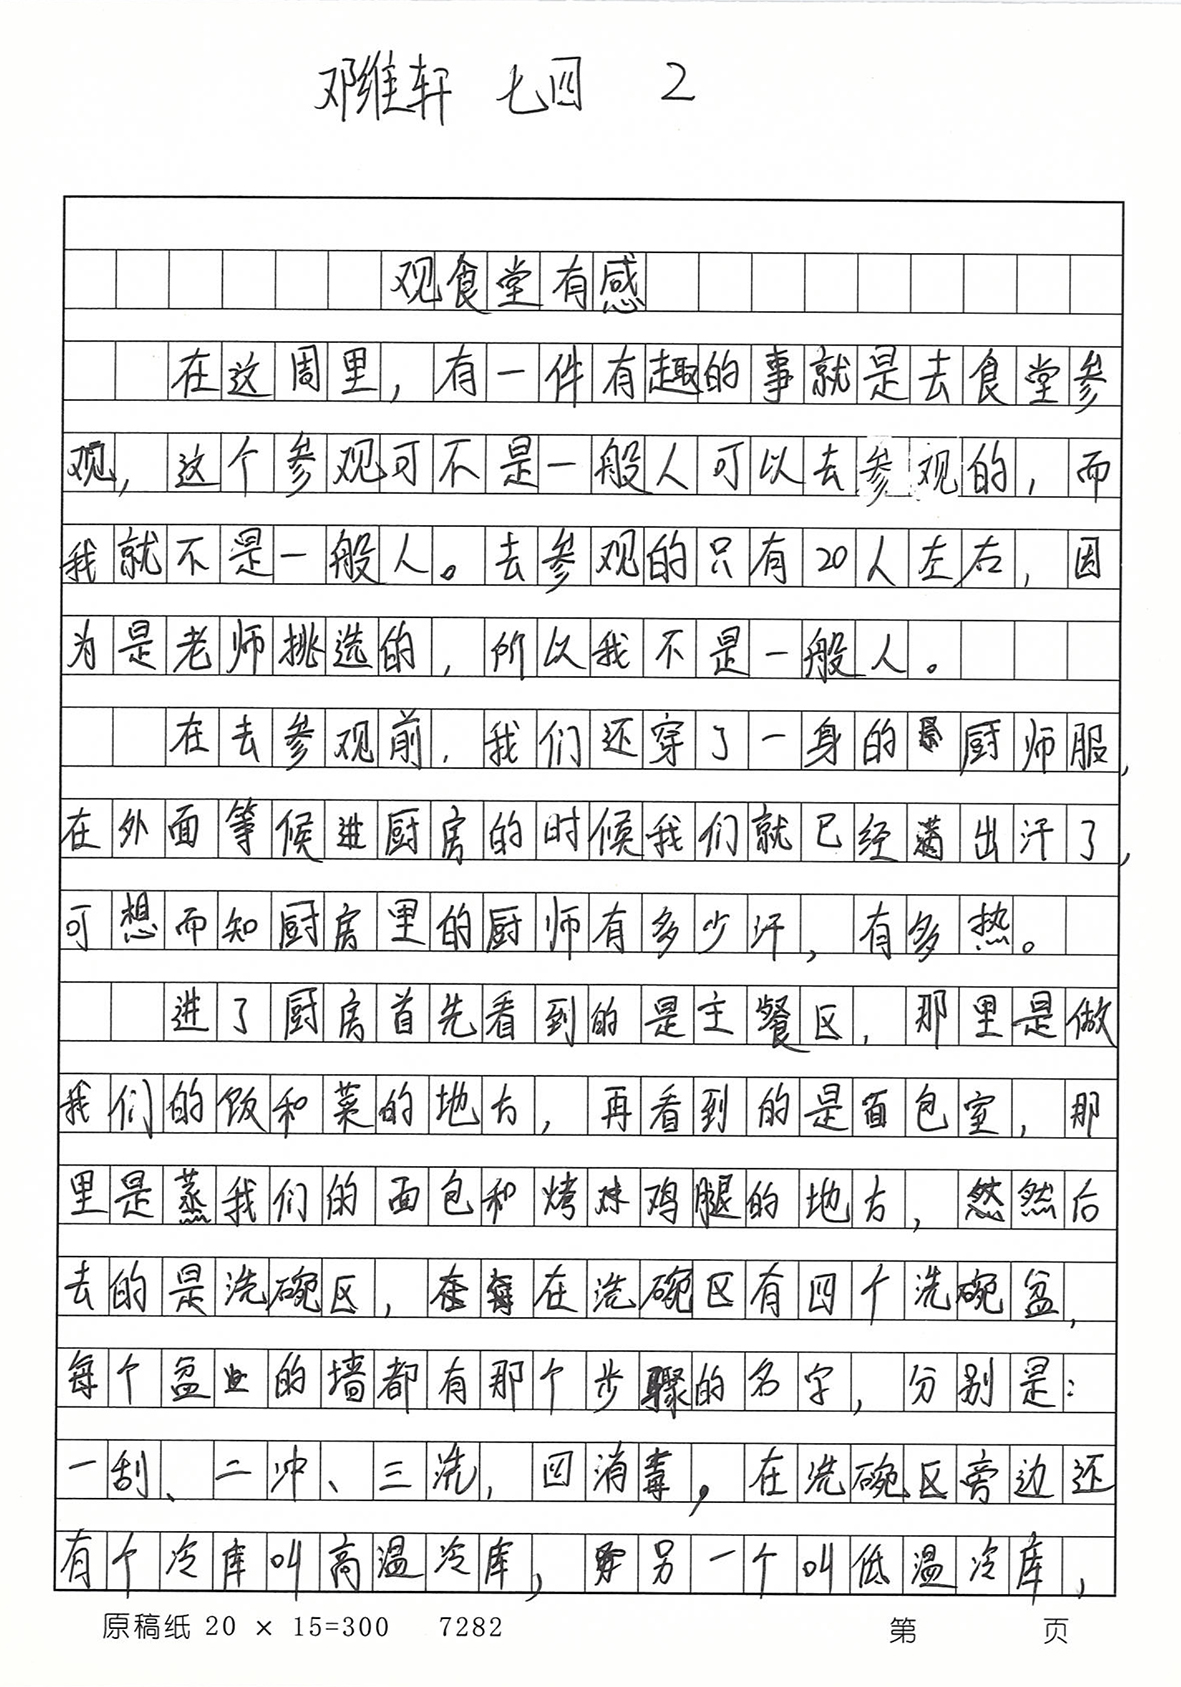 邓维轩 七四 2
观食堂有感
在这周里，有一件有趣的事就是去食堂参
观，这个参观可不是一般人可以去参观的，而
我就不是一般人。去参观的只有20人左右，因
为是老师挑选的，所以我不是一般人。
在去参观前，我们还穿了一身的厨师服，
在外面等候进厨房的时候我们就已经满出汗了，
可想而知厨房里的厨师有多少汗，有多热。
进了厨房首先看到的是主餐区，那里是做
我们的饭和菜的地方，再看到的是面包室，那
里是蒸我们的面包和烤炸鸡腿的地方，然然后
去的是洗碗区，在在洗碗区有四个洗碗盆，
每个盆上的墙都有那个步骤的名字，分别是：
一刮、二冲、三洗，四消毒，在洗碗区旁边还
有个冷库叫高温冷库，另一个叫低温冷库，
原稿纸 20 × 15=300 7282 第 页